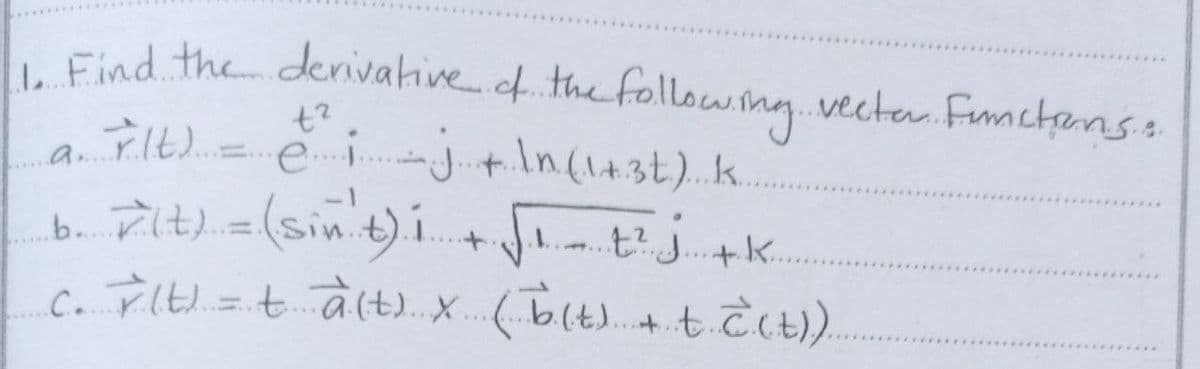 1. Find the derivative of the following vector functions:
a. r⃗(t) = e^{t²} i - j + ln(1+3t) k
b. r⃗(t) = (sin⁻¹t) i + √(1 - t²) j + k
c. r⃗(t) = t a⃗(t) × (b⃗(t) + t c⃗(t))